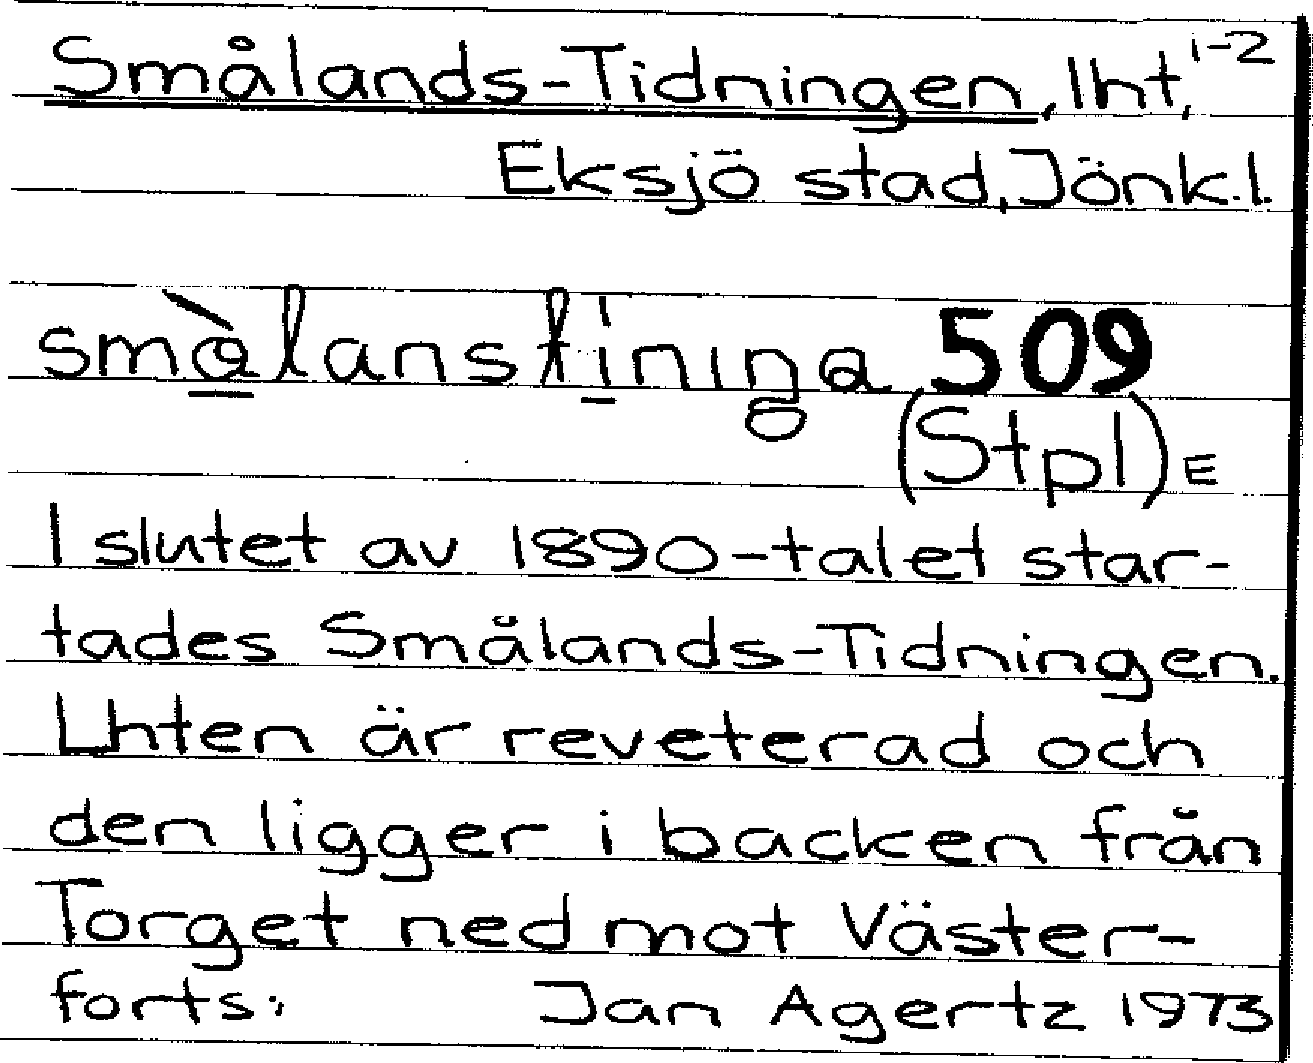 Smålands-Tidningen, lht, 1-2
Eksjö stad, Jönk.l.
smålanstininga 509
(Stpl) E
I slutet av 1890-talet star-
tades Smålands-Tidningen.
Lhten är reveterad och
den ligger i backen från
Torget ned mot Väster-
forts: Jan Agertz 1973